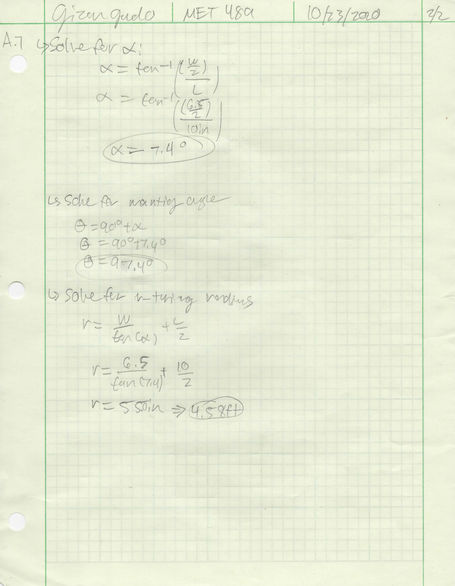 Gizan gudo MET 489 10/23/2020 2/2
A.7 ↳ Solve for α:
α = tan⁻¹((W/2)/L)
α = tan⁻¹((6.5/2)/10in)
α = 7.4°
↳ Solve for mounting angle
θ = 90° + α
θ = 90° + 7.4°
θ = 97.4°
↳ Solve for turning radius
r = W/tan(α) + L/2
r = 6.5/tan(7.4) + 10/2
r = 55in ⇒ 4.58ft